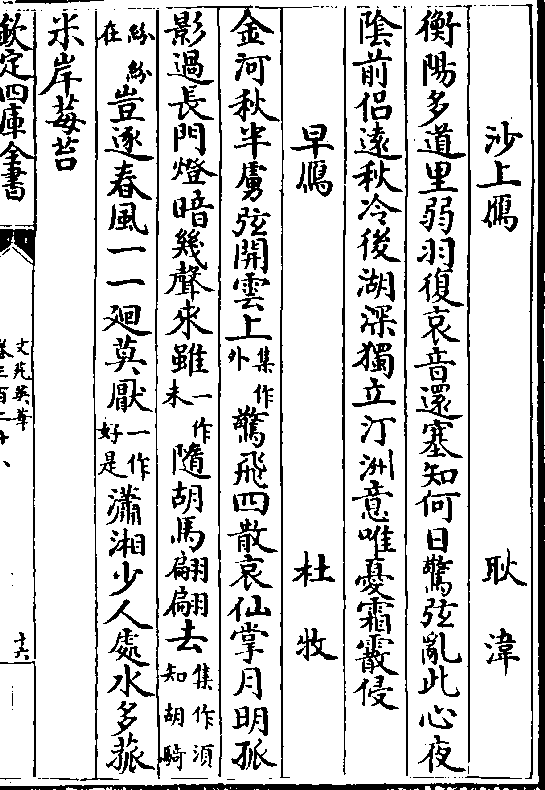 沙上鴈 耿湋
衡陽多道里弱羽復哀音還塞知何日驚弦亂此心夜
陰前侣遠秋冷後湖深獨立汀洲意唯憂霜霰侵
早鴈 杜牧
金河秋半虜弦開雲上集作外驚飛四散哀仙掌月明孤
影過長門燈暗幾聲來雖一作未隨胡馬翩翩去集作須知胡騎
紛紛在豈逐春風一一廻莫厭一作好是瀟湘少人處水多菰
米岸莓苔
欽定四庫全書
文苑英華
卷三百二十八
十六